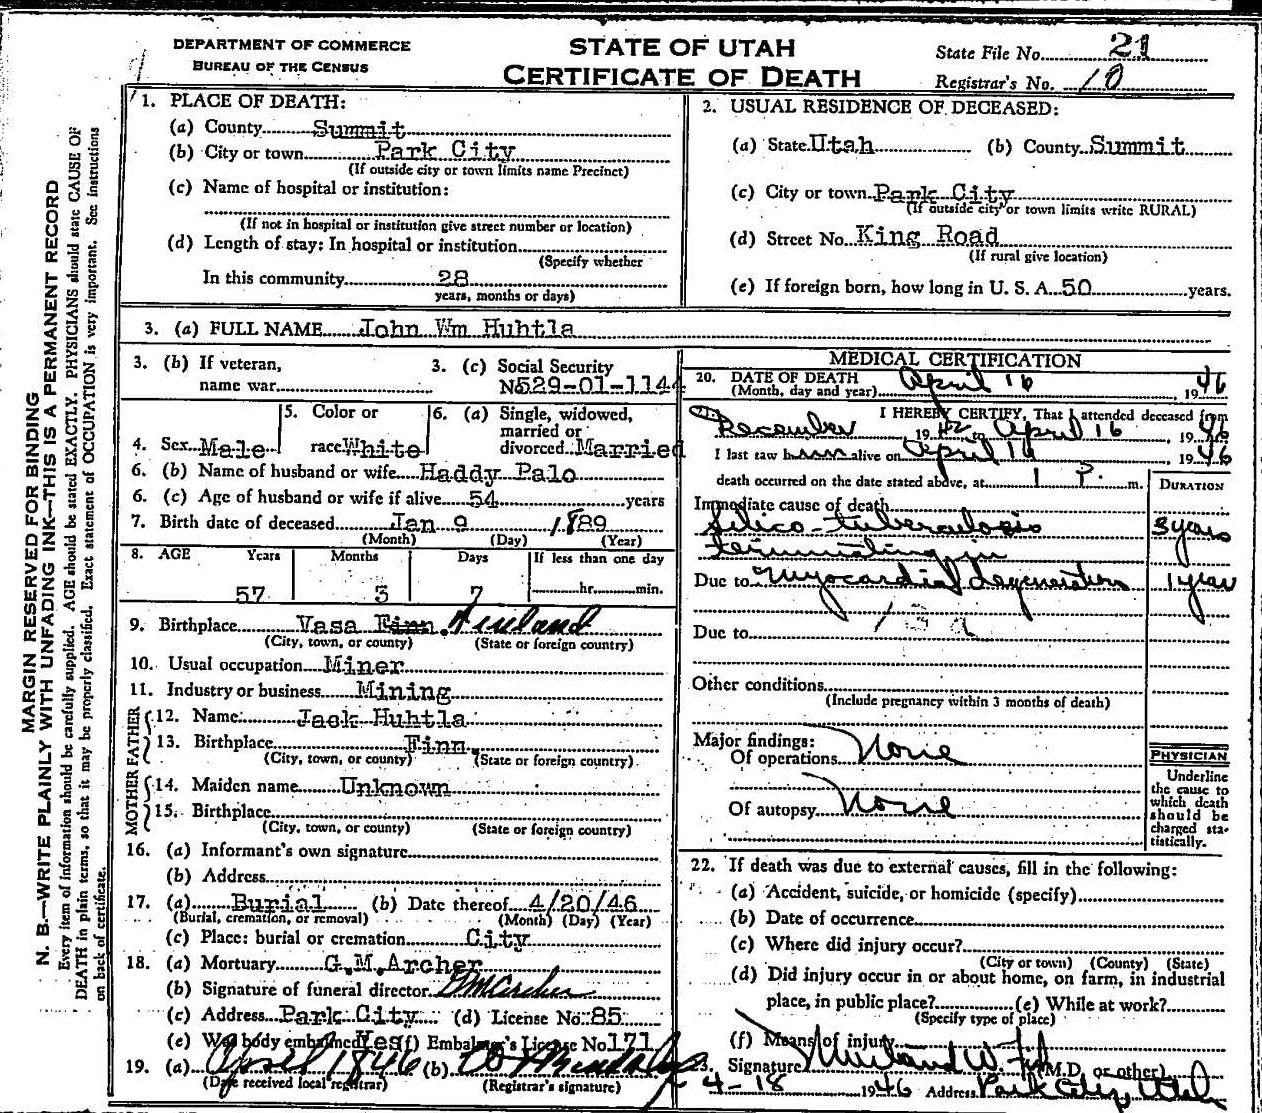 DEPARTMENT OF COMMERCE
BUREAU OF THE CENSUS
STATE OF UTAH
CERTIFICATE OF DEATH
State File No. 21
Registrar's No. 10
MARGIN RESERVED FOR BINDING
N. B.—WRITE PLAINLY WITH UNFADING INK—THIS IS A PERMANENT RECORD
Every item of information should be carefully supplied. AGE should be stated EXACTLY. PHYSICIANS should state CAUSE OF
DEATH in plain terms, so that it may be properly classified. Exact statement of OCCUPATION is very important. See instructions
on back of certificate.
1. PLACE OF DEATH:
(a) County Summit
(b) City or town Park City
(If outside city or town limits name Precinct)
(c) Name of hospital or institution:
(If not in hospital or institution give street number or location)
(d) Length of stay: In hospital or institution
(Specify whether
In this community 28
years, months or days)
2. USUAL RESIDENCE OF DECEASED:
(a) State Utah (b) County Summit
(c) City or town Park City
(If outside city or town limits write RURAL)
(d) Street No. King Road
(If rural give location)
(e) If foreign born, how long in U. S. A. 50 years.
3. (a) FULL NAME John Wm Huhtla
3. (b) If veteran,
name war
3. (c) Social Security
No 529-01-1144
4. Sex Male
5. Color or
race White
6. (a) Single, widowed,
married or
divorced Married
6. (b) Name of husband or wife Haddy Palo
6. (c) Age of husband or wife if alive 54 years
7. Birth date of deceased Jan 9 1889
(Month) (Day) (Year)
8. AGE Years Months Days If less than one day
57 3 7 hr. min.
9. Birthplace Vasa Finn. Finland
(City, town, or county) (State or foreign country)
10. Usual occupation Miner
11. Industry or business Mining
FATHER
12. Name Jack Huhtla
13. Birthplace Finn.
(City, town, or county) (State or foreign country)
MOTHER
14. Maiden name Unknown
15. Birthplace
(City, town, or county) (State or foreign country)
16. (a) Informant's own signature
(b) Address
17. (a) Burial (b) Date thereof 4/20/46
(Burial, cremation, or removal) (Month) (Day) (Year)
(c) Place: burial or cremation City
18. (a) Mortuary G.M.Archer
(b) Signature of funeral director GM Archer
(c) Address Park City (d) License No. 85
(e) Was body embalmed Yes (f) Embalmer's License No 171
19. (a) April 18 46 (b)
(Date received local registrar) (Registrar's signature)
MEDICAL CERTIFICATION
20. DATE OF DEATH
(Month, day and year) April 16, 1946
I HEREBY CERTIFY, That I attended deceased from
December 1942 to April 16, 1946
I last saw him alive on April 16, 1946
death occurred on the date stated above, at 1 P. m.
DURATION
Immediate cause of death
Silico-tuberculosis 3 years
terminating in
Due to Myocardial degeneration 1 year
Due to
Other conditions
(Include pregnancy within 3 months of death)
Major findings:
Of operations None
Of autopsy None
PHYSICIAN
Underline
the cause to
which death
should be
charged sta-
tistically.
22. If death was due to external causes, fill in the following:
(a) Accident, suicide, or homicide (specify)
(b) Date of occurrence
(c) Where did injury occur?
(City or town) (County) (State)
(d) Did injury occur in or about home, on farm, in industrial
place, in public place? (e) While at work?
(Specify type of place)
(f) Means of injury
23. Signature (M.D. or other)
4-18 1946 Address Park City, Utah